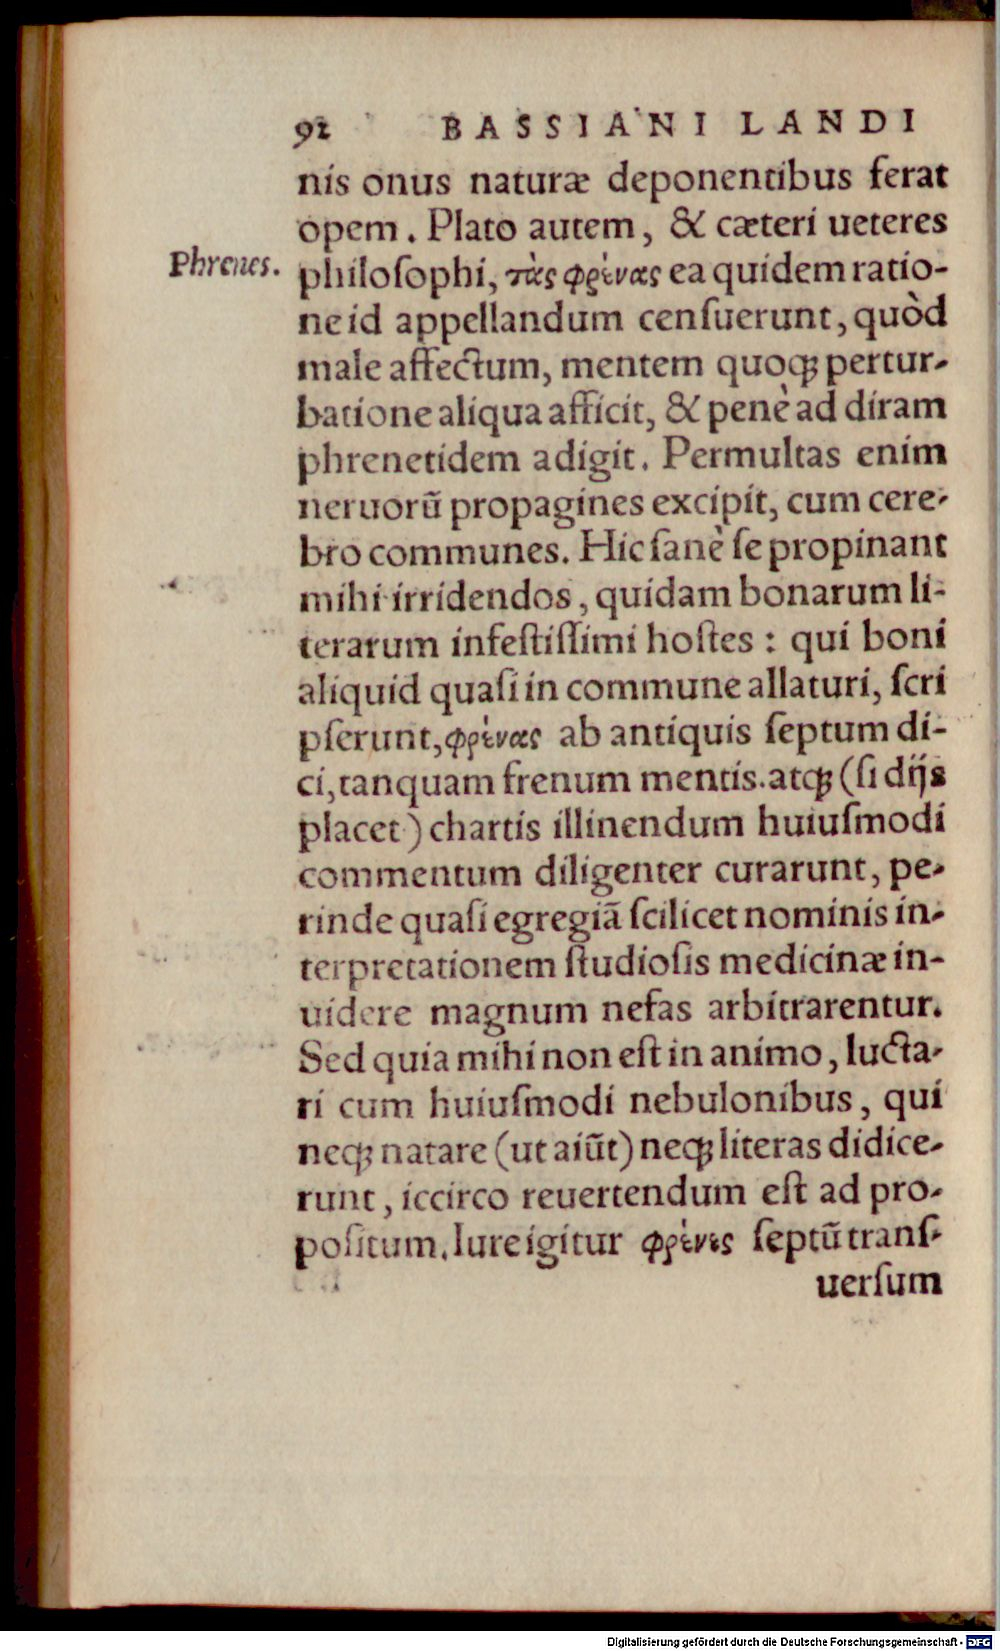 92 BASSIANI LANDI
nis onus naturæ deponentibus ferat
opem. Plato autem, & cæteri ueteres
Phrenes.
philoſophi, τὰς φρένας ea quidem ratio-
ne id appellandum cenſuerunt, quòd
male affectum, mentem quoqꝫ pertur-
batione aliqua afficit, & penè ad diram
phrenetidem adigit. Permultas enim
neruorũ propagines excipit, cum cere-
bro communes. Hic ſanè ſe propinant
mihi irridendos, quidam bonarum li-
terarum infeſtiſſimi hoſtes: qui boni
aliquid quaſi in commune allaturi, ſcri
pſerunt, φρένας ab antiquis ſeptum di-
ci, tanquam frenum mentis. atqꝫ (ſi dijs
placet) chartis illinendum huiuſmodi
commentum diligenter curarunt, pe-
rinde quaſi egregiã ſcilicet nominis in-
terpretationem ſtudioſis medicinæ in-
uidere magnum nefas arbitrarentur.
Sed quia mihi non eſt in animo, lucta-
ri cum huiuſmodi nebulonibus, qui
neqꝫ natare (ut aiũt) neqꝫ literas didice-
runt, iccirco reuertendum eſt ad pro-
poſitum. Iure igitur φρένες ſeptũ tranſ-
uerſum
Digitalisierung gefördert durch die Deutsche Forschungsgemeinschaft - DFG